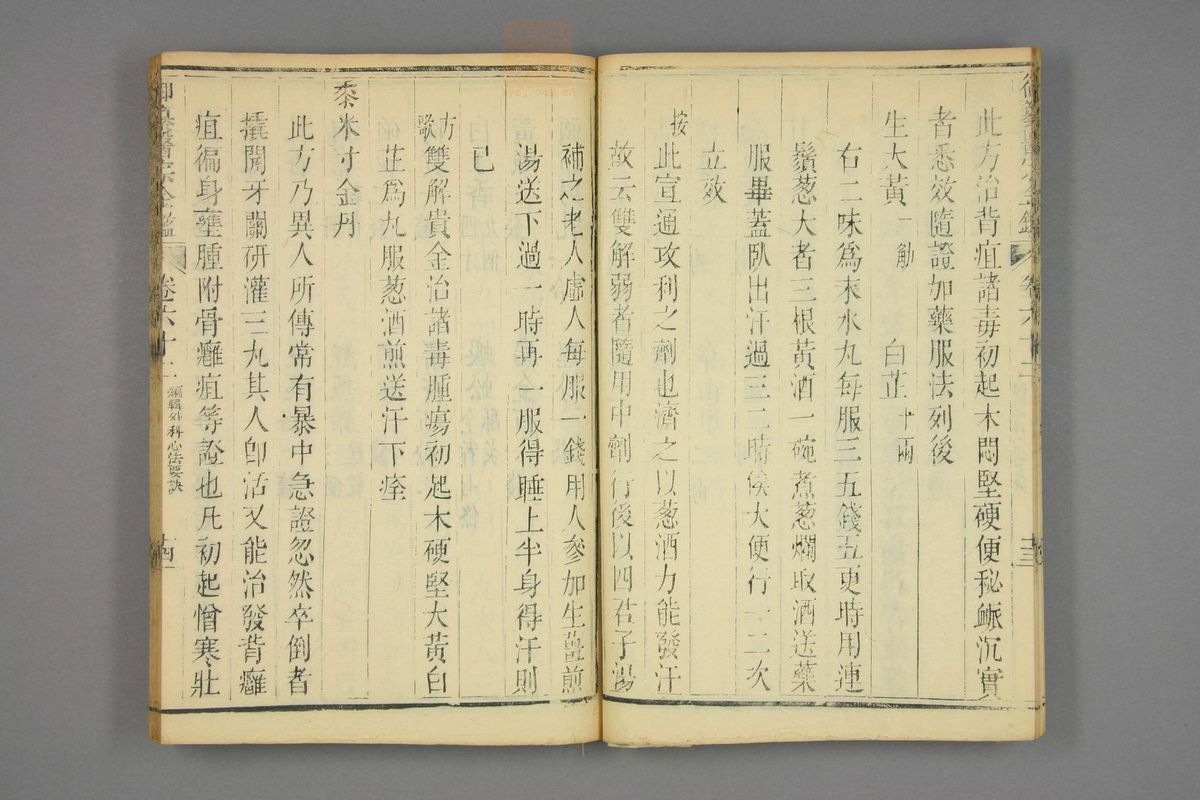 此方治背疽諸毒初起木悶堅硬便秘脈沉實
者悉效隨證加藥服法列後
生大黃一觔 白芷十兩
右二味爲末水丸每服三五錢五更時用連
鬚葱大者三根黃酒一碗煮葱爛取酒送藥
服畢蓋臥出汗過三二時俟大便行一二次
立效
按此宣通攻利之劑也濟之以葱酒力能發汗
故云雙解弱者隨用中劑行後以四君子湯
補之老人虛人每服一錢用人參加生薑煎
湯送下過一時再一服得睡上半身得汗則
已
方歌雙解貴金治諸毒腫瘍初起木硬堅大黃白
芷爲丸服葱酒煎送汗下痊
黍米寸金丹
此方乃異人所傳常有暴中急證忽然卒倒者
撬開牙關研灌三丸其人卽活又能治發背癰
疽徧身壅腫附骨癰疽等證也凡初起憎寒壯
卷六十二 編輯外科心法要訣 十四